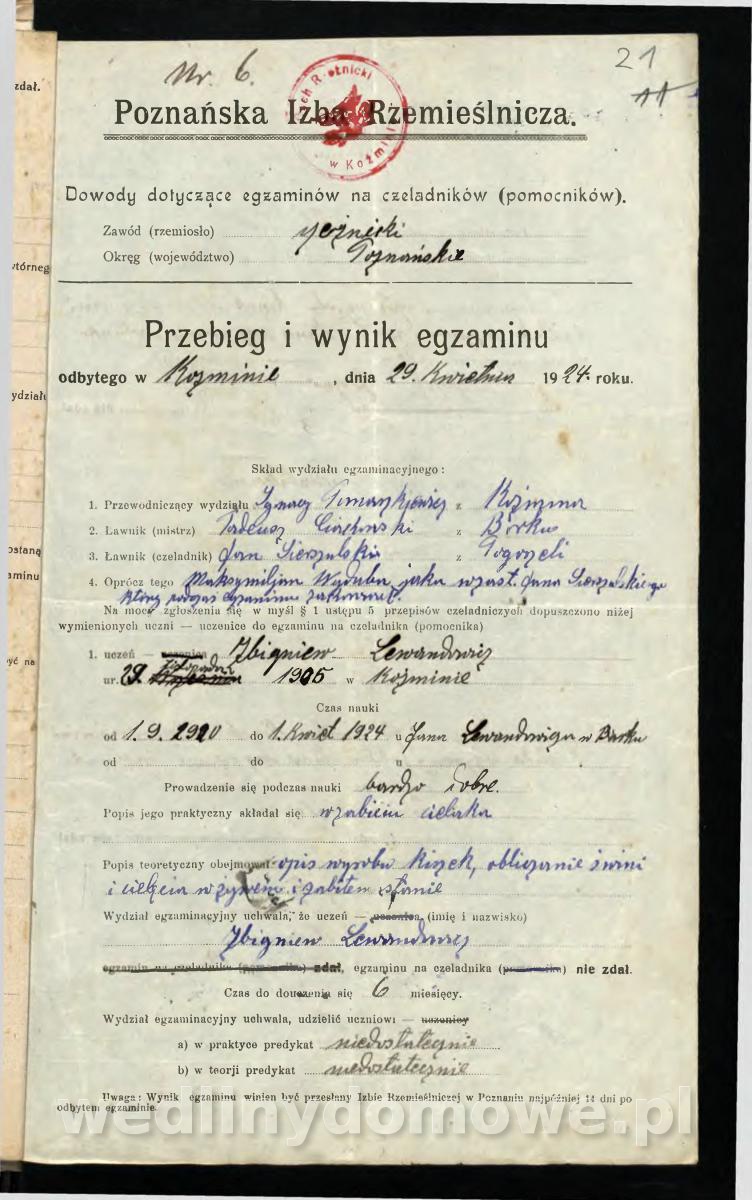 zdał.
tórneg
ydziału
ostaną
aminu
yć na
Nr. 6.
21
11
Poznańska Izba Rzemieślnicza.
w Koźmini
Dowody dotyczące egzaminów na czeladników (pomocników).
Zawód (rzemiosło) rzeźnicki
Okręg (województwo) Poznańskie
Przebieg i wynik egzaminu
odbytego w Kozminie, dnia 29. Kwietnia 1924. roku.
Skład wydziału egzaminacyjnego:
1. Przewodniczący wydziału Ignacy z Koźmina
2. Ławnik (mistrz) Tadeusz z Borku
3. Ławnik (czeladnik) Jan z Pogorzeli
4. Oprócz tego Maksymiljan jako zast. Jana
który podczas egzaminu
Na mocy zgłoszenia się w myśl § 1 ustępu 5 przepisów czeladniczych dopuszczono niżej
wymienionych uczni — uczenice do egzaminu na czeladnika (pomocnika)
1. uczeń — uczenica Zbigniew Lewandowicz
ur. 29. Listopada 1905 w Koźminie
Czas nauki
od 1.9.1920 do 1. Kwiet 1924 u Jana Lewandowicza w Borku
od do u
Prowadzenie się podczas nauki bardzo dobre.
Popis jego praktyczny składał się w zabiciu cielaka
Popis teoretyczny obejmował opis wyrobu kiszek, obliczanie świni
i cielęcia w żywem i zabitem stanie
Wydział egzaminacyjny uchwala, że uczeń — uczenica (imię i nazwisko)
Zbigniew Lewandowicz
egzamin na czeladnika (pomocnika) zdał, egzaminu na czeladnika (pomocnika) nie zdał.
Czas do douczenia się 6 miesięcy.
Wydział egzaminacyjny uchwala, udzielić uczniowi — uczenicy
a) w praktyce predykat niedostatecznie
b) w teorji predykat niedostatecznie
Uwaga: Wynik egzaminu winien być przesłany Izbie Rzemieślniczej w Poznaniu najpóźniej 14 dni po
odbytem egzaminie.
wedlinydomowe.pl